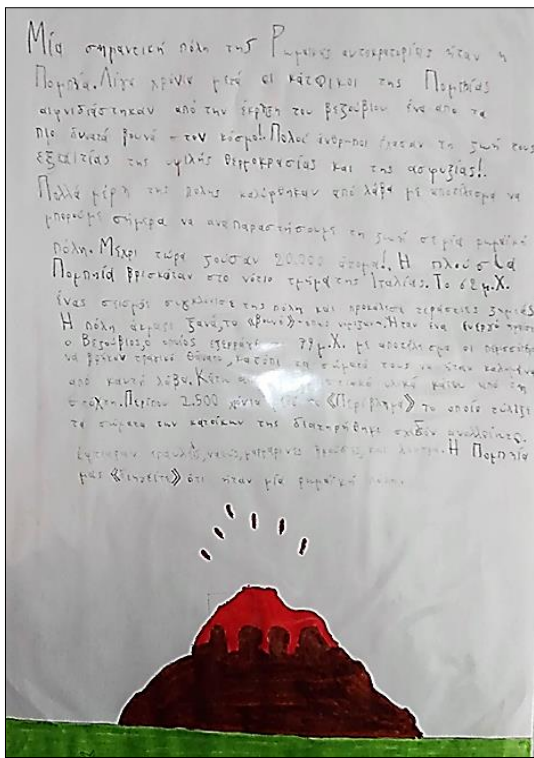 Μία σημαντική πόλη της Ρωμαικης αυτοκρατορίας ήταν η
Πομπηία. Λίγα χρόνια μετά οι κάτοικοι της Πομπηίας
αιφνιδιάστηκαν από την έκρηξη του βεζούβιου ένα απο τα
πιο δυνατά βουνά στον κόσμο!. Πολοί άνθρωποι έχασαν τη ζωή τους
εξαιτίας της υψιλής θερμοκρασίας και της ασφυξίας!.
Πολλά μέρη της πόλης καλύφθηκαν από λάβα με αποτέλεσμα να
μπορούμε σήμερα να αναπαραστήσουμε τη ζωή σε μία ρωμαϊκή
πόλη. Μέχρι τώρα ζούσαν 20.000 άτομα!. Η πλούσια
Πομπηία βρισκόταν στο νότιο τμήμα της Ιταλίας. Το 62 μ.Χ.
ένας σεισμός συγκλόνισε της πόλη και προκάλεσε τεράστιες ζημιές
Η πόλη άκμασε ξανά, το «βουνό» όπως νόμιζαν. Ήταν ένα ενεργό
ο Βεζούβιος, ο οποίος εξερράγει 79 μ.Χ. με αποτέλεσμα οι
να βρήκαν τραγικό θάνατο, κατόπι τα σώματά τους να ήταν
από καυτή λάβα. Κάτω υλικό κάτω από τη
στάχτη. Περίπου 2.500 χρόνια μετά το «Περίβλημα» το οποίο τύλιξε
τα σώματα των κατοίκων της διατηρήθηκε σχεδόν αναλλοίωτο.
ναούς, και λουτρά. Η Πομπηία
μας «διηγείτε» ότι ήταν μία ρωμαϊκή πόλη.